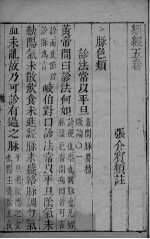 類經五卷
張介賓類註
脉色類
診法常以平旦 素問脉要精微論
黃帝問曰診法何如
岐伯對曰診法常以平旦陰氣未
動陽氣未散飲食未進經脉未盛絡脉調勻氣
血未亂故乃可診有過之脉